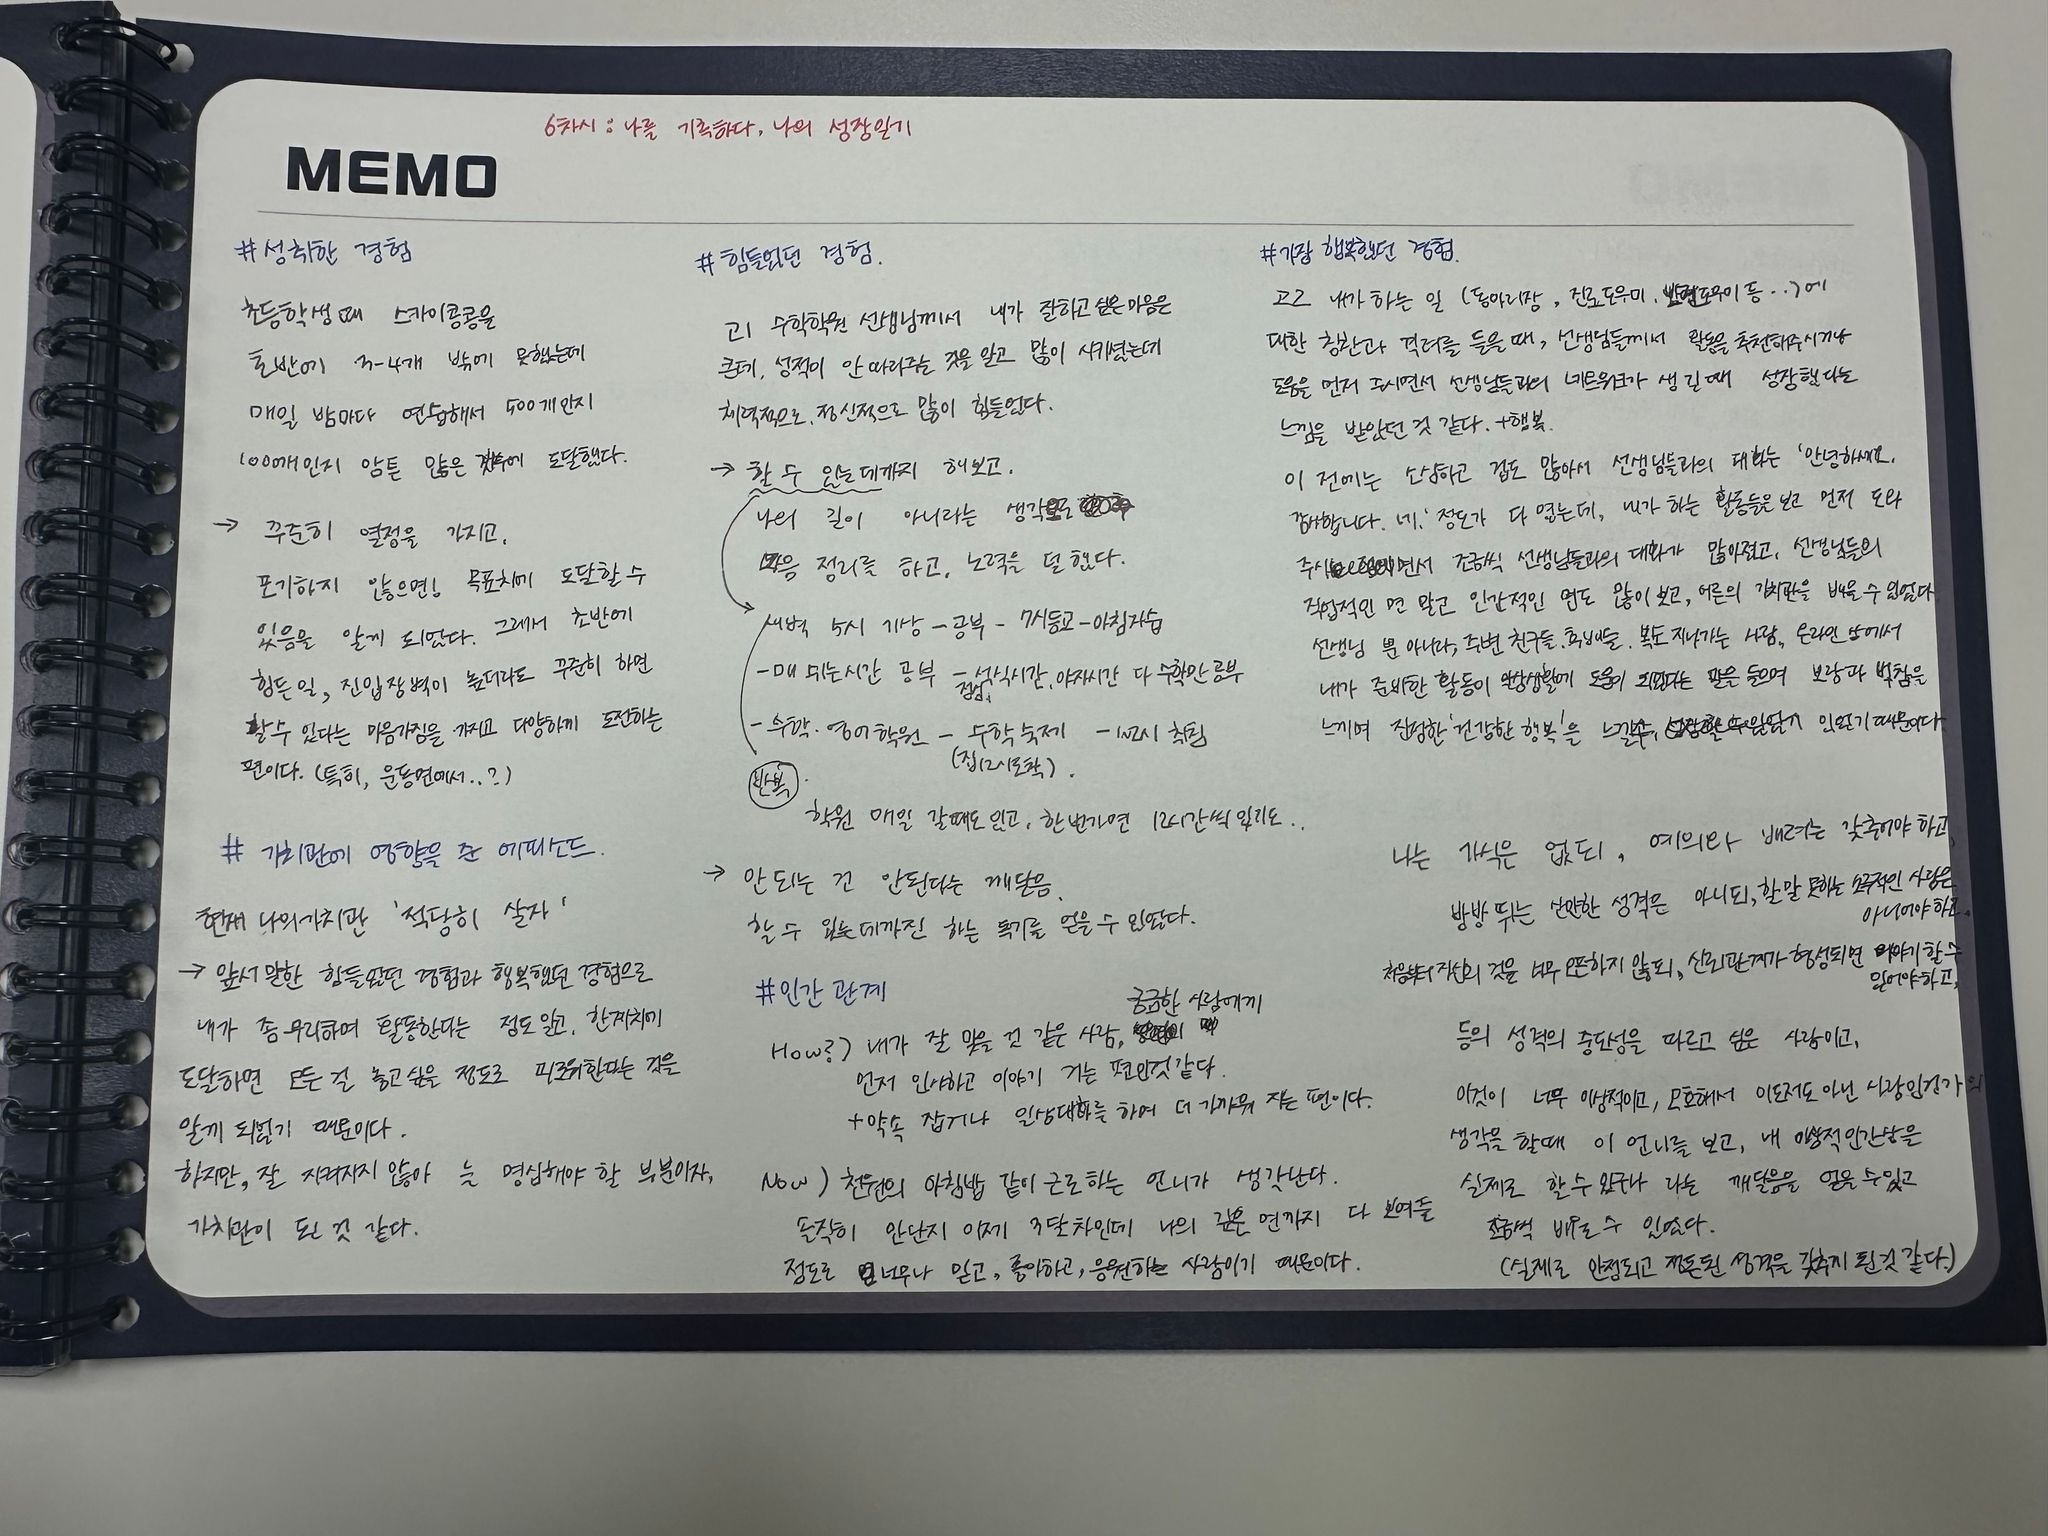 6차시 : 나를 기록하다, 나의 성장일기
MEMO
#성취한 경험
초등학생때 스카이콩콩을
초반에 3-4개 밖에 못했는데
매일 밤마다 연습해서 500개인지
1000개인지 암튼 많은 갯수에 도달했다.
→ 꾸준히 열정을 가지고,
포기하지 않으면! 목표치에 도달할 수
있음을 알게 되었다. 그래서 초반에
힘든일, 진입장벽이 높더라도 꾸준히 하면
할 수 있다는 마음가짐을 가지고 다양하게 도전하는
편이다. (특히, 운동면에서..?)
# 가치관에 영향을 준 에피소드.
현재 나의가치관 '적당히 살자'
→ 앞서 말한 힘들었던 경험과 행복했던 경험으로
내가 좀 무리하여 활동한다는 점도 알고, 한계치에
도달하면 모든 걸 놓고싶을 정도로 피로워한다는 것을
알게 되었기 때문이다.
하지만, 잘 지켜지지 않아 늘 명심해야 할 부분이자,
가치관이 된 것 같다.
#힘들었던 경험.
고1 수학학원 선생님께서 내가 잘하고 싶은 마음은
큰데, 성적이 안 따라주는 것을 알고 많이 시키셨는데
체력적으로, 정신적으로 많이 힘들었다.
→ 할 수 있는데까지 해보고,
나의 길이 아니라는 생각으로
마음 정리를 하고, 노력을 덜 했다.
새벽 5시 기상 - 공부 - 7시등교 - 아침자습
- 매 쉬는시간 공부 - 점심, 석식시간, 야자시간 다 수학만 공부
- 수학·영어학원 - 수학 숙제 - 1~2시 취침
(집12시도착).
반복
학원 매일 갈때도있고, 한번가면 12시간씩 있기도..
→ 안 되는 건 안된다는 깨달음.
할 수 있는데까진 하는 독기를 얻을 수 있었다.
#인간 관계
How?) 내가 잘 맞을 것 같은 사람, 궁금한 사람에게
먼저 인사하고 이야기 거는 편인것같다.
+약속 잡거나 일상대화를 하여 더 가까워 지는 편이다.
Now ) 천원의 아침밥 같이 근로하는 언니가 생각난다.
솔직히 안단지 이제 3달차인데 나의 깊은 면까지 다 보여줄
정도로 너무나 믿고, 좋아하고, 응원하는 사람이기 때문이다.
#가장 행복했던 경험.
고2 내가 하는 일 (동아리장, 진로도우미, 도우미 등..)에
대한 칭찬과 격려를 들을 때, 선생님들께서 활동을 추천해주시거나
도움을 먼저 주시면서 선생님들과의 네트워크가 생길때 성장했다는
느낌을 받았던 것 같다. +행복.
이 전에는 소심하고 겁도 많아서 선생님들과의 대화는 '안녕하세요.
감사합니다. 네.' 정도가 다 였는데, 내가 하는 활동들을 보고 먼저 도와
주시면서 조금씩 선생님들과의 대화가 많아졌고, 선생님들의
직업적인 면 말고 인간적인 면도 많이 보고, 어른의 가치관을 배울 수 있었다.
선생님 뿐 아니라, 주변 친구들, 후배들, 복도 지나가는 사람, 온라인 상에서
내가 준비한 활동이 일상생활에 도움이 되었다는 말을 들으며 보람과 벅참을
느끼며 진정한 '건강한 행복'을 느낄수 있었기 때문이다.
나는 가식은 없되, 예의와 배려는 갖추어야 하고,
방방 뛰는 산만한 성격은 아니되, 할말 못하는 소극적인 사람은
아니어야 하고,
처음부터 자신의 것을 너무 오픈하지 않되, 신뢰관계가 형성되면 이야기 할 수
있어야하고,
등의 성격의 중도성을 따르고 싶은 사람이고,
이것이 너무 이상적이고, 모호해서 이도저도 아닌 사람인건가의
생각을 할때 이 언니를 보고, 내 이상적인간상을
실제로 할 수 있구나 라는 깨달음을 얻을 수 있고
조금씩 배울 수 있었다.
(실제로 안정되고 정돈된 성격을 갖추게 된것 같다.)